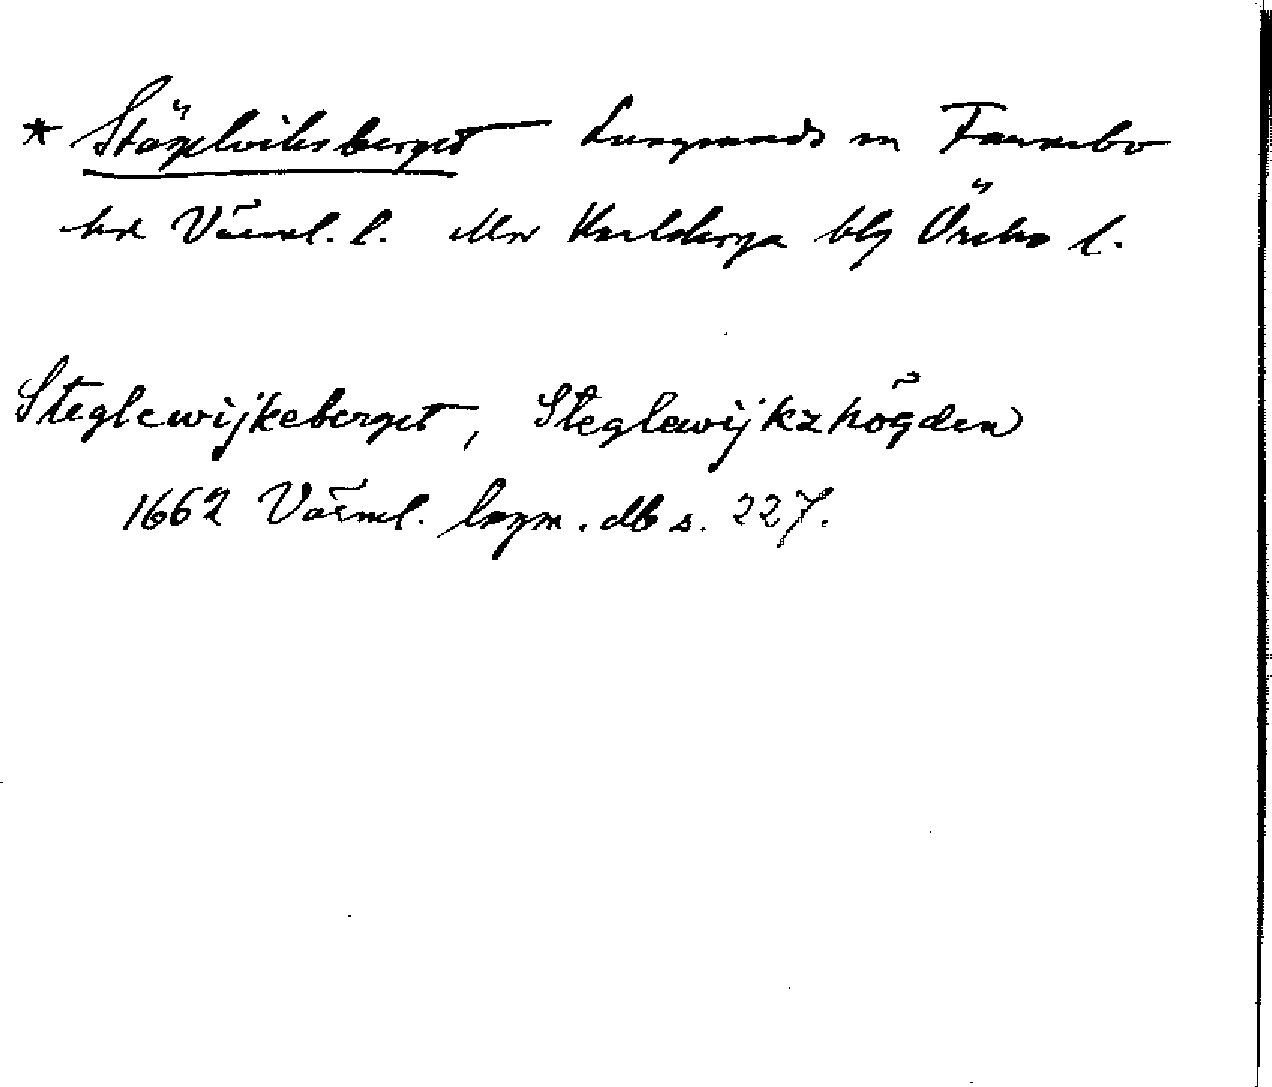 * Stägelviksberget Lungsunds sn Färnebo
hd Värml. l. eller Karlskoga blg Örebro l.
Steglewijkeberget, Steglewijkzhögden
1662 Värml. lagm. db s. 227.